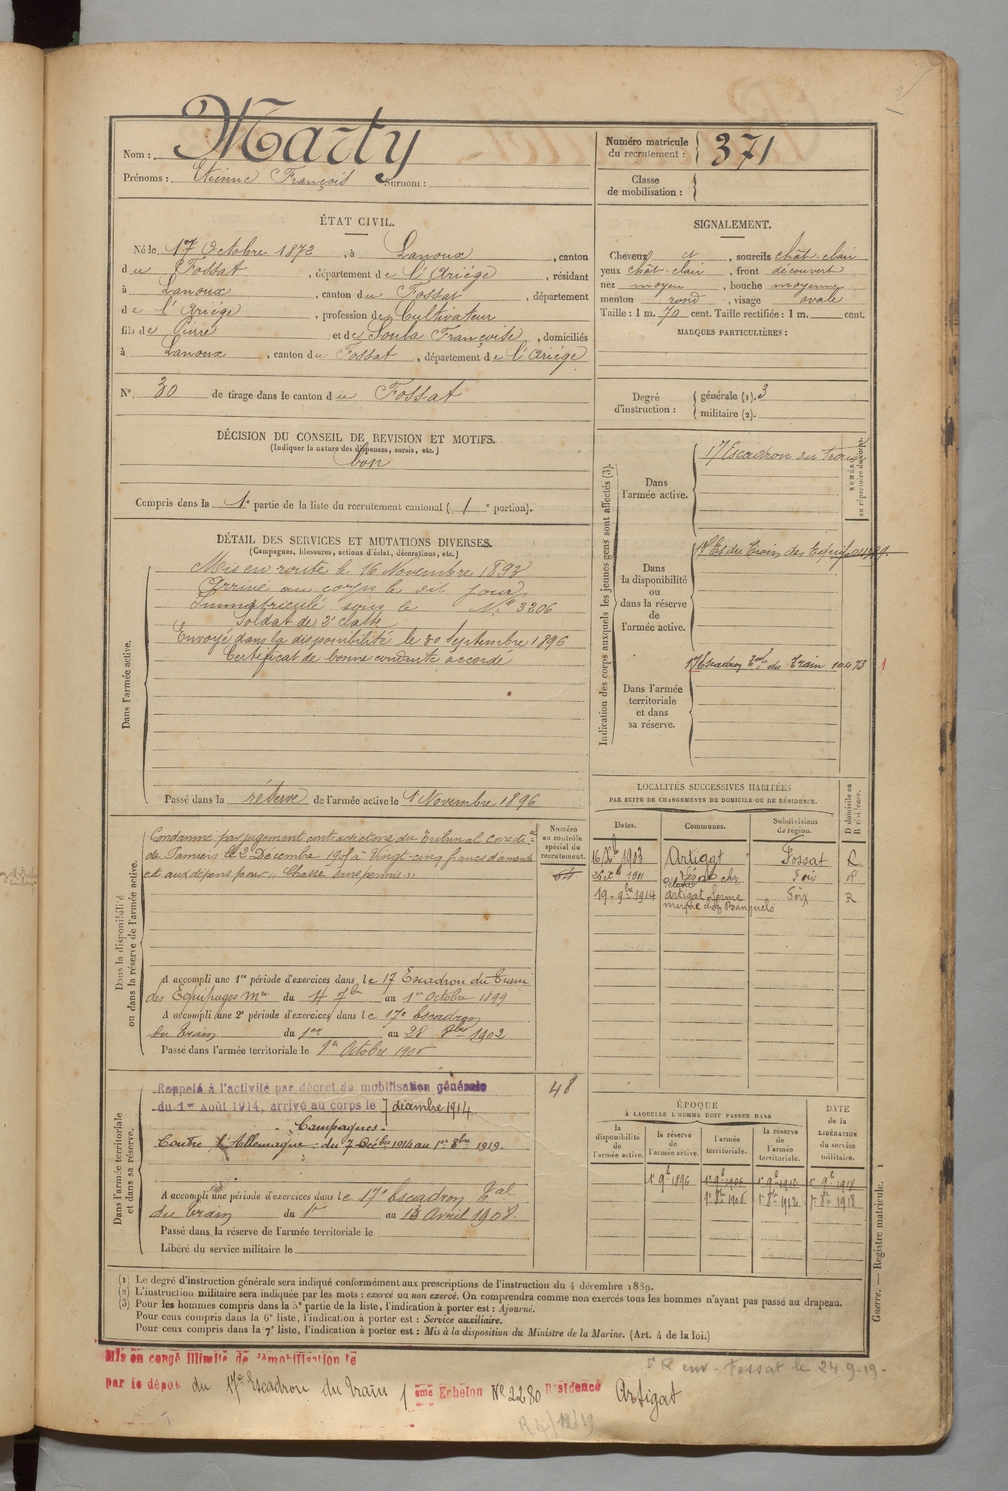 Nom : Marty
Prénoms : Etienne François Surnom :
Numéro matricule
du recrutement : 371
Classe
de mobilisation :
ÉTAT CIVIL.
Né le 17 Octobre 1872, à Lanoux, canton
du Fossat, département de l'Ariége, résidant
à Lanoux, canton du Fossat, département
de l'Ariége, profession de Cultivateur
fils de Pierre et de Soula Françoise, domiciliés
à Lanoux, canton du Fossat, département de l'Ariége
N° 30 de tirage dans le canton du Fossat
SIGNALEMENT.
Cheveux et, sourcils chât-clair
yeux chât-clair, front découvert
nez moyen, bouche moyenne
menton rond, visage ovale
Taille : 1 m. 70 cent. Taille rectifiée : 1 m. cent.
MARQUES PARTICULIÈRES :
Degré
d'instruction :
générale (1). 3
militaire (2).
DÉCISION DU CONSEIL DE REVISION ET MOTIFS.
(Indiquer la nature des dispenses, sursis, etc.)
bon
Compris dans la 1e partie de la liste du recrutement cantonal ( 1 e portion).
DÉTAIL DES SERVICES ET MUTATIONS DIVERSES.
(Campagnes, blessures, actions d'éclat, décorations, etc.)
Dans l'armée active.
Mis en route le 16 Novembre 1893
Arrivé au corps le dit jour
Immatriculé sous le N° 3206
Soldat de 2e classe
Envoyé dans la disponibilité le 30 Septembre 1896
Certificat de bonne conduite accordé
Passé dans la réserve de l'armée active le 1 Novembre 1896
Indication des corps auxquels les jeunes gens sont affectés (3).
NUMÉROS
au répertoire du corps.
Dans
l'armée active.
17 Escadron du Train
Dans
la disponibilité
ou
dans la réserve
de
l'armée active.
17 Es du Train des Equip
Dans l'armée
territoriale
et dans
sa réserve.
17 Escadron Tal du Train 10473
1
Dans la disponibilité
ou dans la réserve de l'armée active.
Numéro
au contrôle
spécial du
recrutement.
Condamné par jugement contradictoire du Tribunal correctel
de Pamiers le 2 Décembre 1907 à Vingt-cinq francs d'amende
et aux dépens pour "Chasse sans permis"
A accompli une 1re période d'exercices dans le 17 Escadron du Train
des Equipages Mre du 4 7bre au 1er Octobre 1899
A accompli une 2e période d'exercices dans le 17e Escadron
du Train du 1er au 28 8bre 1902
Passé dans l'armée territoriale le 1er Octobre 1906
LOCALITÉS SUCCESSIVES HABITÉES
PAR SUITE DE CHANGEMENTS DE DOMICILE OU DE RÉSIDENCE.
Dates. Communes. Subdivisions de région. D domicile ou R résidence.
16 Xbre 1903 Artigat Fossat R
26 Xe 1911 Foix R
19 - 9bre 1914 Artigat ferme Foix R
Dans l'armée territoriale
et dans sa réserve.
Rappelé à l'activité par décret de mobilisation générale
du 1er Août 1914, arrivé au corps le 7 décembre 1914.
48
- Campagnes -
Contre l'Allemagne : du 7 Décbre 1914 au 1er 8bre 1919.
A accompli une période d'exercices dans le 17e Escadron Tal
du Train du 1er au 13 Avril 1908.
Passé dans la réserve de l'armée territoriale le
Libéré du service militaire le
ÉPOQUE
À LAQUELLE L'HOMME DOIT PASSER DANS
DATE
DE LA
LIBÉRATION
du service
militaire.
la disponibilité de l'armée active. la réserve de l'armée active. l'armée territoriale. la réserve de l'armée territoriale.
1r 9e 1896 1r 9e 1906 1r 9e 1912 1r 9e 1918
1r 8bre 1906 1r 8bre 1912 1r 8bre 1918
(1) Le degré d'instruction générale sera indiqué conformément aux prescriptions de l'instruction du 4 décembre 1889.
(2) L'instruction militaire sera indiquée par les mots : exercé ou non exercé. On comprendra comme non exercés tous les hommes n'ayant pas passé au drapeau.
(3) Pour les hommes compris dans la 5e partie de la liste, l'indication à porter est : Ajourné.
Pour ceux compris dans la 6e liste, l'indication à porter est : Service auxiliaire.
Pour ceux compris dans la 7e liste, l'indication à porter est : Mis à la disposition du Ministre de la Marine. (Art. 4 de la loi.)
Guerre. — Registre matricule. 1
Mis en congé illimité de démobilisation le
par le dépôt du 17e Escadron du Train 1 ème Echelon N° 2280 Résidence Artigat
Fossat le 24-9-19-